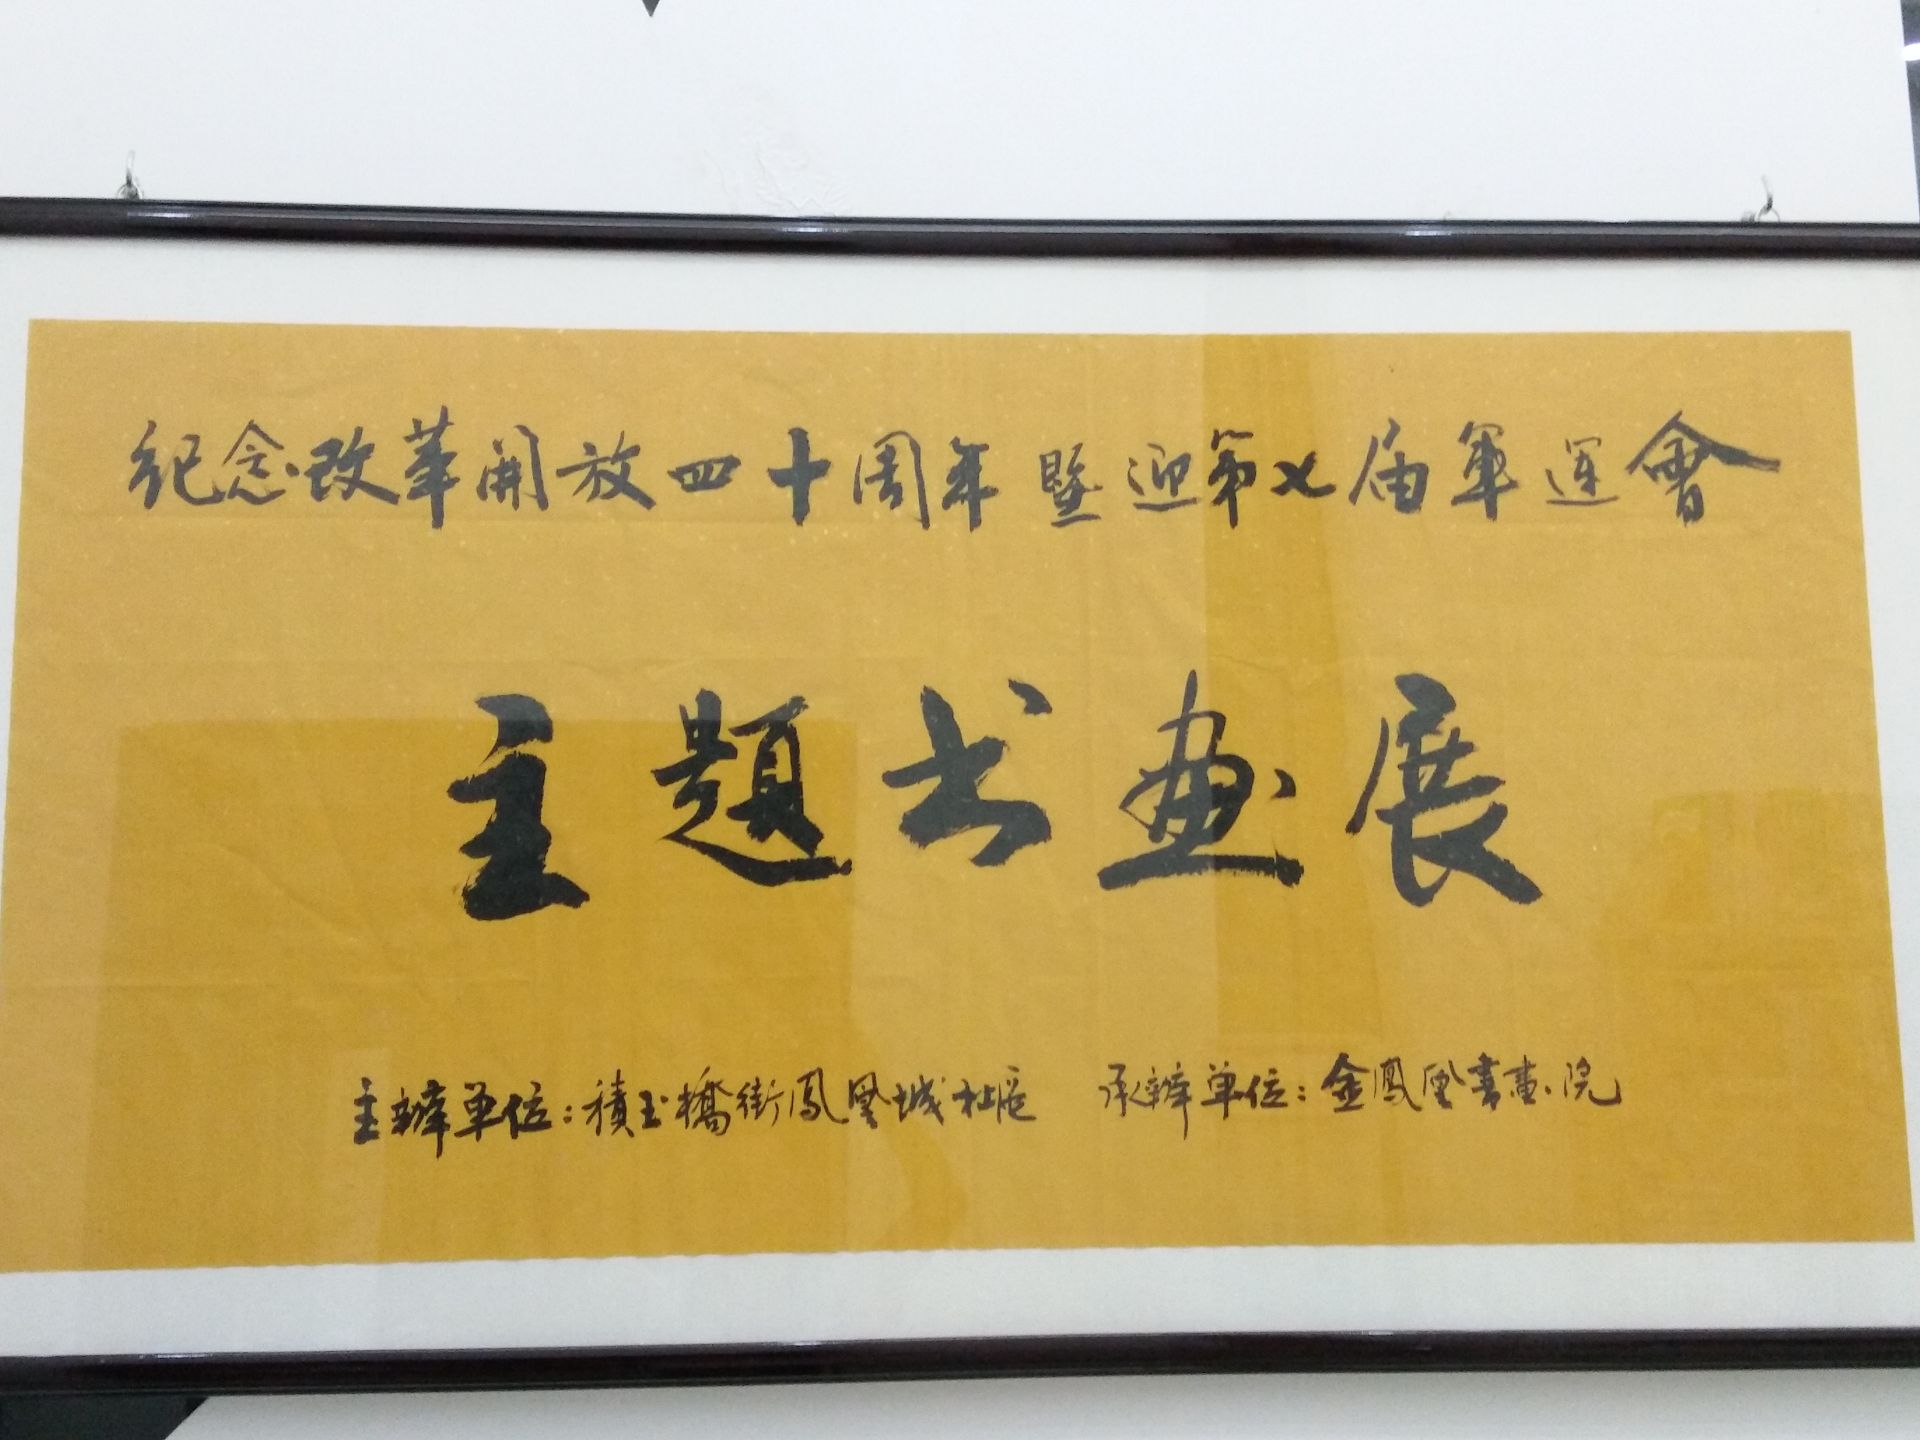 纪念改革開放四十周年暨迎第七届軍運會
主题书画展
主辦单位：積玉橋街鳳凰城社區　承辦单位：金鳳凰書畫院